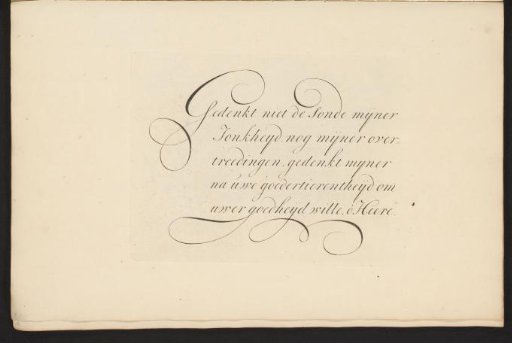 Gedenkt niet de Sonde myner
Jonkheyd nog mijner over-
treedingen, gedenkt myner
na uwe goedertierentheyd om
uwer goedheyd wille, ô Heere.